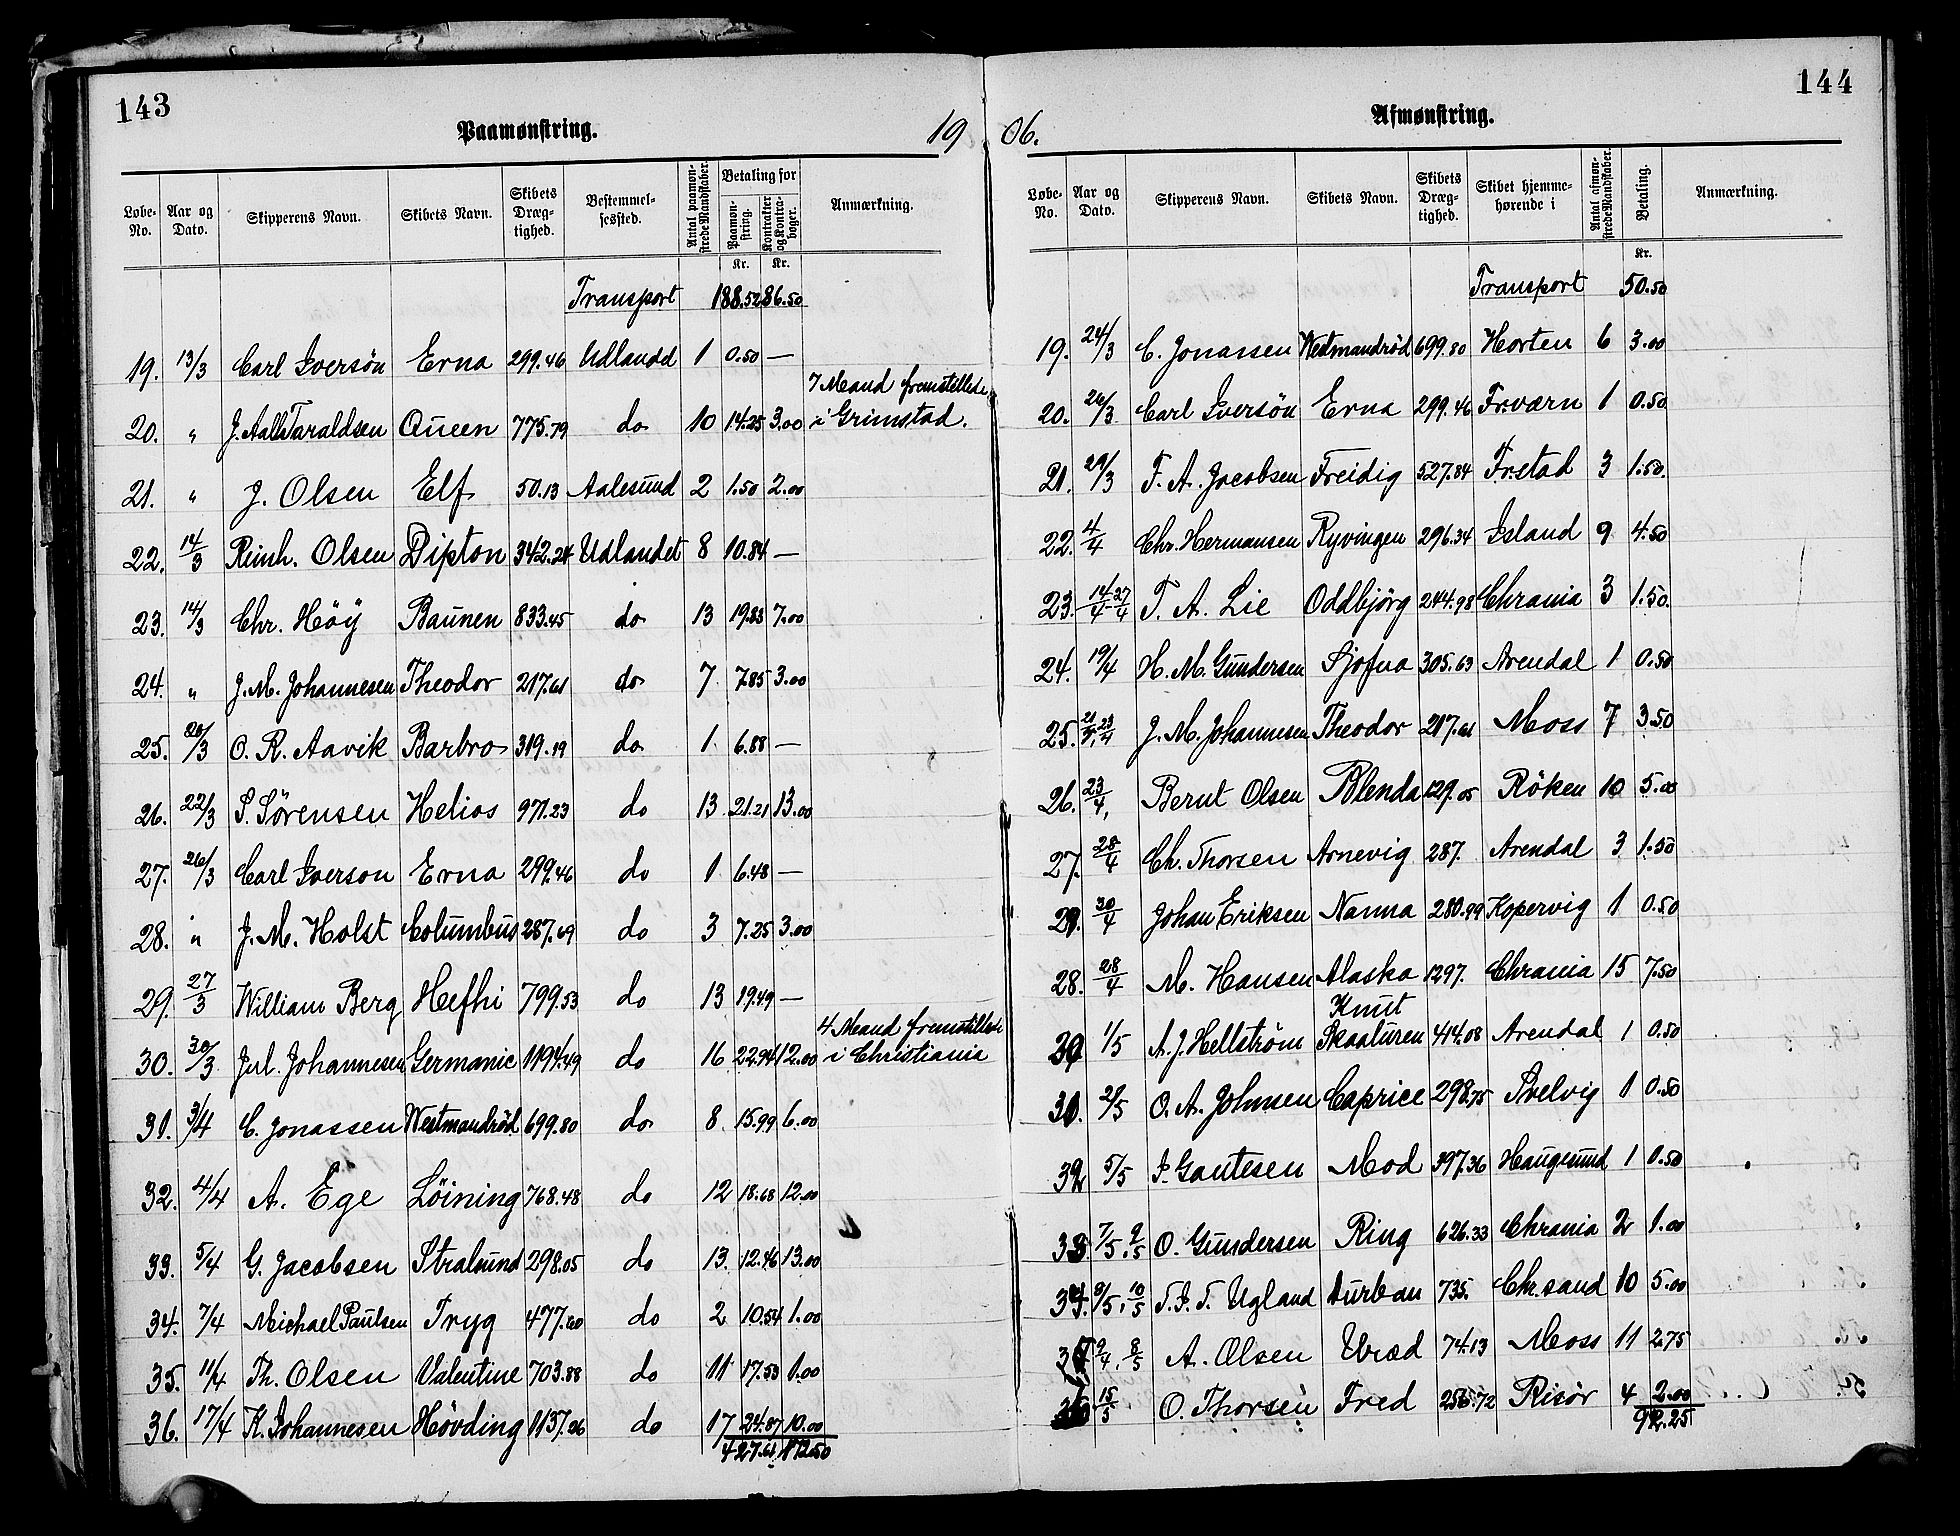 143
Paamønstring.
19
Løbe-No.	Aar og Dato.	Skipperens Navn.	Skibets Navn.	Skibets Dræg-tighed.	Bestemmel-sessted.	Antal paamøn-strede Mandskaber.	Betaling for Paamøn-string. Kr.	Kontrakter og Kontra-bøger. Kr.	Anmærkning.
Transport 188.52 86.50
19. 13/3 Carl Iversøn Erna 299.46 Udlandd 1 0.50 —
20. " J. Aalls Taraldsen Queen 775.79 do 10 14.25 3.00 7 Mand fremstillede i Grimstad.
21. " J. Olsen Elf 50.13 Aalesund 2 1.50 2.00
22. 14/3 Reinh. Olsen Dipton 342.24 Udlandet 8 10.84 —
23. 14/3 Chr. Höÿ Baunen 833.45 do 13 19.83 7.00
24. " J. M. Johannesen Theodor 217.61 do 7 7.85 3.00
25. 20/3 O. R. Aavik Barbro 319.19 do 1 6.88 —
26. 22/3 S. Sörensen Helios 971.23 do 13 21.21 13.00
27. 26/3 Carl Iverson Erna 299.46 do 1 6.48 —
28. " J. M. Holst Columbus 287.69 do 3 7.25 3.00
29. 27/3 William Berg Hefhi 799.53 do 13 19.49 —
30. 30/3 Jul. Johannesen Germanic 1194.49 do 16 22.94 12.00 4 Mand fremstillede i Christiania
31. 3/4 C. Jonassen Westmandrød 699.80 do 8 15.99 6.00
32. 4/4 A. Ege Löining 768.48 do 12 18.68 12.00
33. 5/4 G. Jacobsen Stralsund 298.05 do 13. 12.46 13.00
34. 7/4 Michael Paulsen Tryg 477.60 do 2 10.54 1.00
35. 11/4 Th. Olsen Valentine 703.88 do 11 17.53 1.00
36. 17/4 K. Johannesen Hövding 1137.26 do 17 24.87 10.00
427.61 172.50
144
Afmønstring.
06.
Løbe-No.	Aar og Dato.	Skipperens Navn.	Skibets Navn.	Skibets Dræg-tighed.	Skibet hjemme-hørende i	Antal afmøn-strede Mandskaber.	Betaling. Kr.	Anmærkning.
Transport 50.50
19. 24/3 C. Jonassen Westmandrød 699.80 Horten 6 3.00
20. 26/3 Carl Iversøn Erna 299.46 Fr.værn 1 0.50
21. 29/3 F. A. Jacobsen Freidig 527.84 Fr.stad 3 1.50.
22. 4/4 Chr. Hermansen Ryvingen 296.34 Island 9 4.50
23. 14/4 27/4 T. A. Lie Oddbjörg 244.98 Chrania 3 1.50.
24. 19/4 H. M. Gundersen Sjofna 305.63 Arendal 1 0.50
25. 21/4, 23/4 J. M. Johannesen Theodor 217.61 Moss 7 3.50
26. 23/4, Bernt Olsen Blenda 129.05 Röken 10 5.00
27. 28/4 Ch. Thorsen Arnevig 287. Arendal 3 1.50
29. 30/4 Johan Eriksen Nanna 280.99 Kopervig 1 0.50
28. 28/4 M. Hansen Alaska 1297. Chrania 15 7.50
30 1/5 A. J. Hellström Knut Skaaluren 414.08 Arendal 1 0.50
31. 2/5 O. A. Johnsen Caprice 298.75 Svelvig 1 0.50
32 5/5 J. Gautesen Mod 397.36 Haugesund 1 0.50
33. 7/5, 9/5 O. Gundersen Ring 626.33 Chrania 2 1.00
34. 9/5, 10/5 T. J. T. Ugland Durban 735. Chr.sand 10 5.00
35 9/4, 8/5 A. Olsen Uræd 74.13 Moss 11 2.75
36 15/5 O. Thorsen Fred 256.72 Risör 4 2.00
92.25